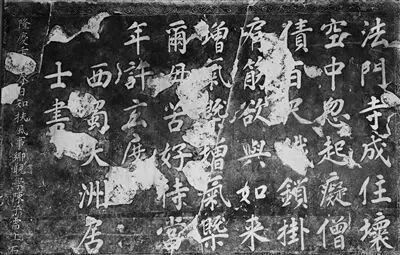 法門寺成住壞
空中忽起癡僧
債百尺鐵鎖掛
肩筋欲與如来
增氣槩增氣槩
爾毋苦好待當
年許玄度
西蜀大洲居
士書
隆慶 知扶風事